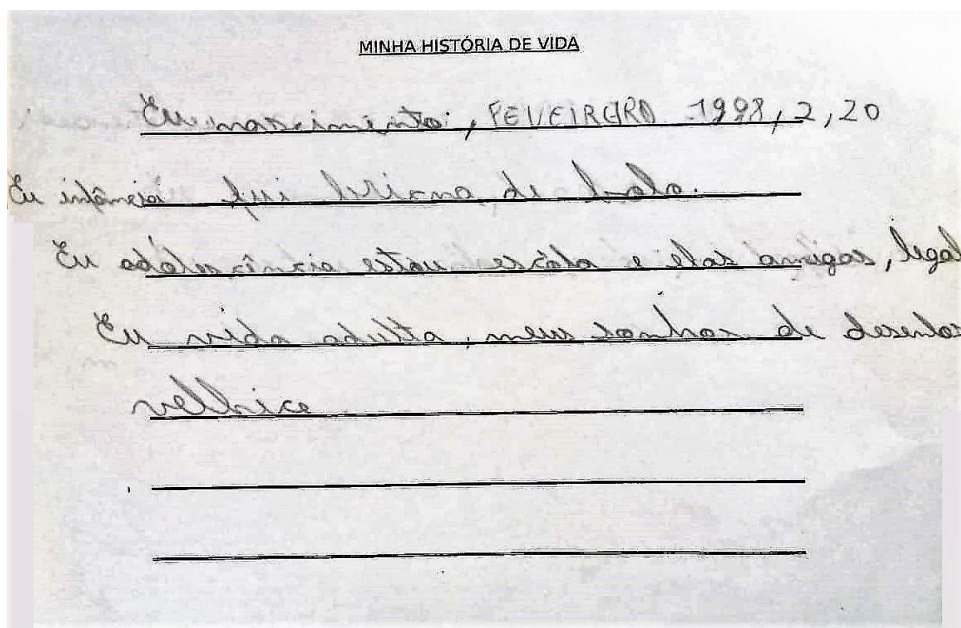 MINHA HISTÓRIA DE VIDA
Eu nascimento:, FEVEIRERO 1998,2,20
Eu infância fui de bola.
Eu adólescência estou escola e elas amigas, legal
Eu vida adulta, meus sonhos de desenhos
velhice